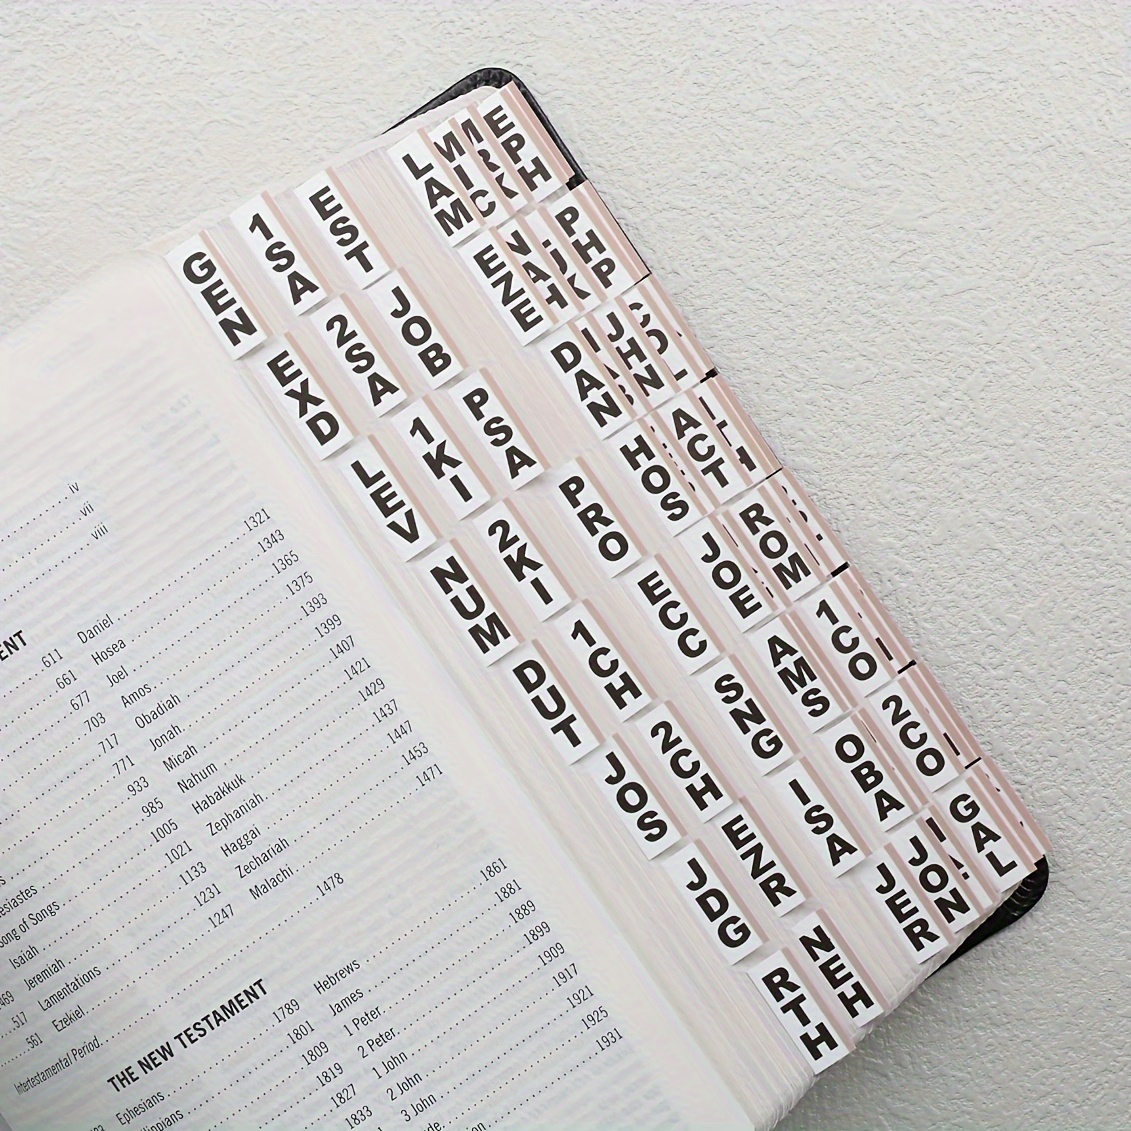 GEN
EXD
LEV
NUM
DUT
JOS
JDG
RTH
1SA
2SA
1KI
2KI
1CH
2CH
EZR
NEH
EST
JOB
PSA
PRO
ECC
SNG
ISA
JER
LAM
EZE
DAN
HOS
JOE
AMS
OBA
JON
MIC
MRK
JHN
ACT
ROM
1CO
2CO
GAL
EPH
PHP
iv
vii
viii
611 Daniel 1321
661 Hosea 1343
677 Joel 1365
703 Amos 1375
717 Obadiah 1393
771 Jonah 1399
933 Micah 1407
985 Nahum 1421
1005 Habakkuk 1429
1021 Zephaniah 1437
Song of Songs 1133 Haggai 1447
Isaiah 1231 Zechariah 1453
Jeremiah 1247 Malachi 1471
517 Lamentations
561 Ezekiel
Intertestamental Period 1478
THE NEW TESTAMENT
1789 Hebrews 1861
1801 James 1881
1809 1 Peter 1889
1819 2 Peter 1899
Ephesians 1827 1 John 1909
1833 2 John 1917
3 John 1921
1925
1931